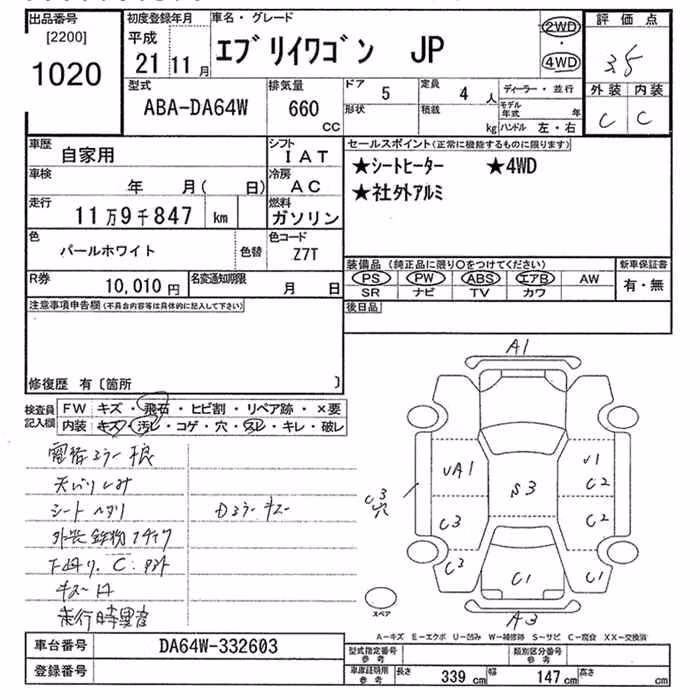 出品番号
[2200]
1020
初度登録年月
平成
21 11 月
車名・グレード
エブリイワゴン JP
2WD
・
4WD
評価点
3.5
外装 内装
C C
型式
ABA-DA64W
排気量
660
CC
ドア
5
定員
4 人
形状
積載
kg
ディーラー・並行
モデル年式 年
ハンドル 左・右
車歴
自家用
シフト
IAT
車検
年 月( 日)
冷房
AC
走行
11万9千847 km
燃料
ガソリン
色
パールホワイト
色替
色コード
Z7T
R券
10,010 円
名変通知期限
月 日
セールスポイント(正常に機能するものに限ります)
★シートヒーター ★4WD
★社外アルミ
装備品 (純正品に限り○をつけてください)
新車保証書
PS PW ABS エアB AW
SR ナビ TV カワ
有・無
注意事項申告欄(不具合内容等は具体的に記入して下さい)
後日品
修復歴 有〔箇所 〕
検査員記入欄
FW キズ・飛石・ヒビ割・リペア跡・×要
内装 キズ・汚レ・コゲ・穴・スレ・キレ・破レ
シートヘタリ
Dミラーキズ
A1
UA1
U1
C2
S3
C3
穴
C3
C2
C3
C1
C1
A3
スペア
A-キズ E-エクボ U-凹み W-補修跡 S-サビ C-腐食 XX-交換済
車台番号
DA64W-332603
登録番号
型式指定番号
参考
類別区分番号
参考
車庫証明用
参考
長さ
339 cm
幅
147 cm
高さ
cm